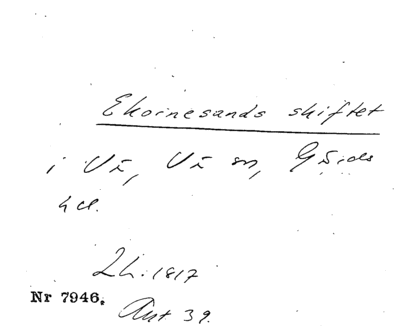 Ekornesands skiftet
i Vi, Vi sn, Gårds
hd.
Lh. 1817
Nr 7946.
Akt 39.